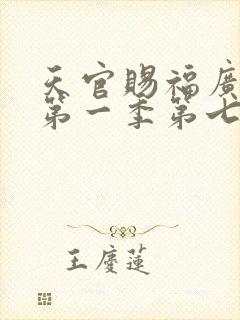 天官賜福廣
第一季第七
王慶蓮